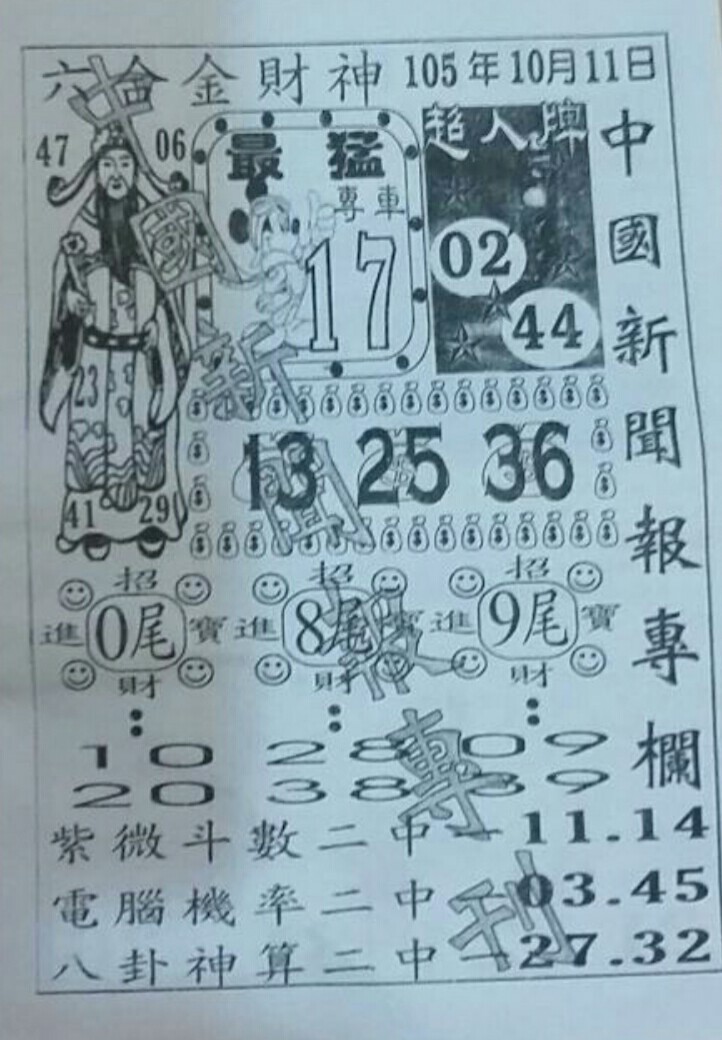 六合金財神 105年10月11日
中國新聞報專欄
47 06
23
41 29
最猛
專車
17
超人牌
02
44
13 25 36
招 招 招
進 0尾 寶 進 8尾 寶 進 9尾 寶
財 財 財
10 28 09
20 38 39
紫微斗數二中一11.14
電腦機率二中一03.45
八卦神算二中一27.32
中國新聞報專刊